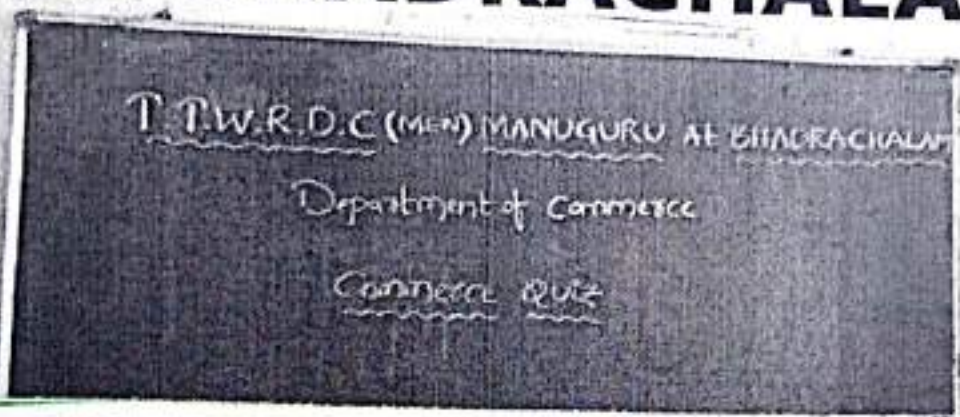 T.T.W.R.D.C (MEN) MANUGURU At BHADRACHALAM
Department of Commerce
Commerce Quiz